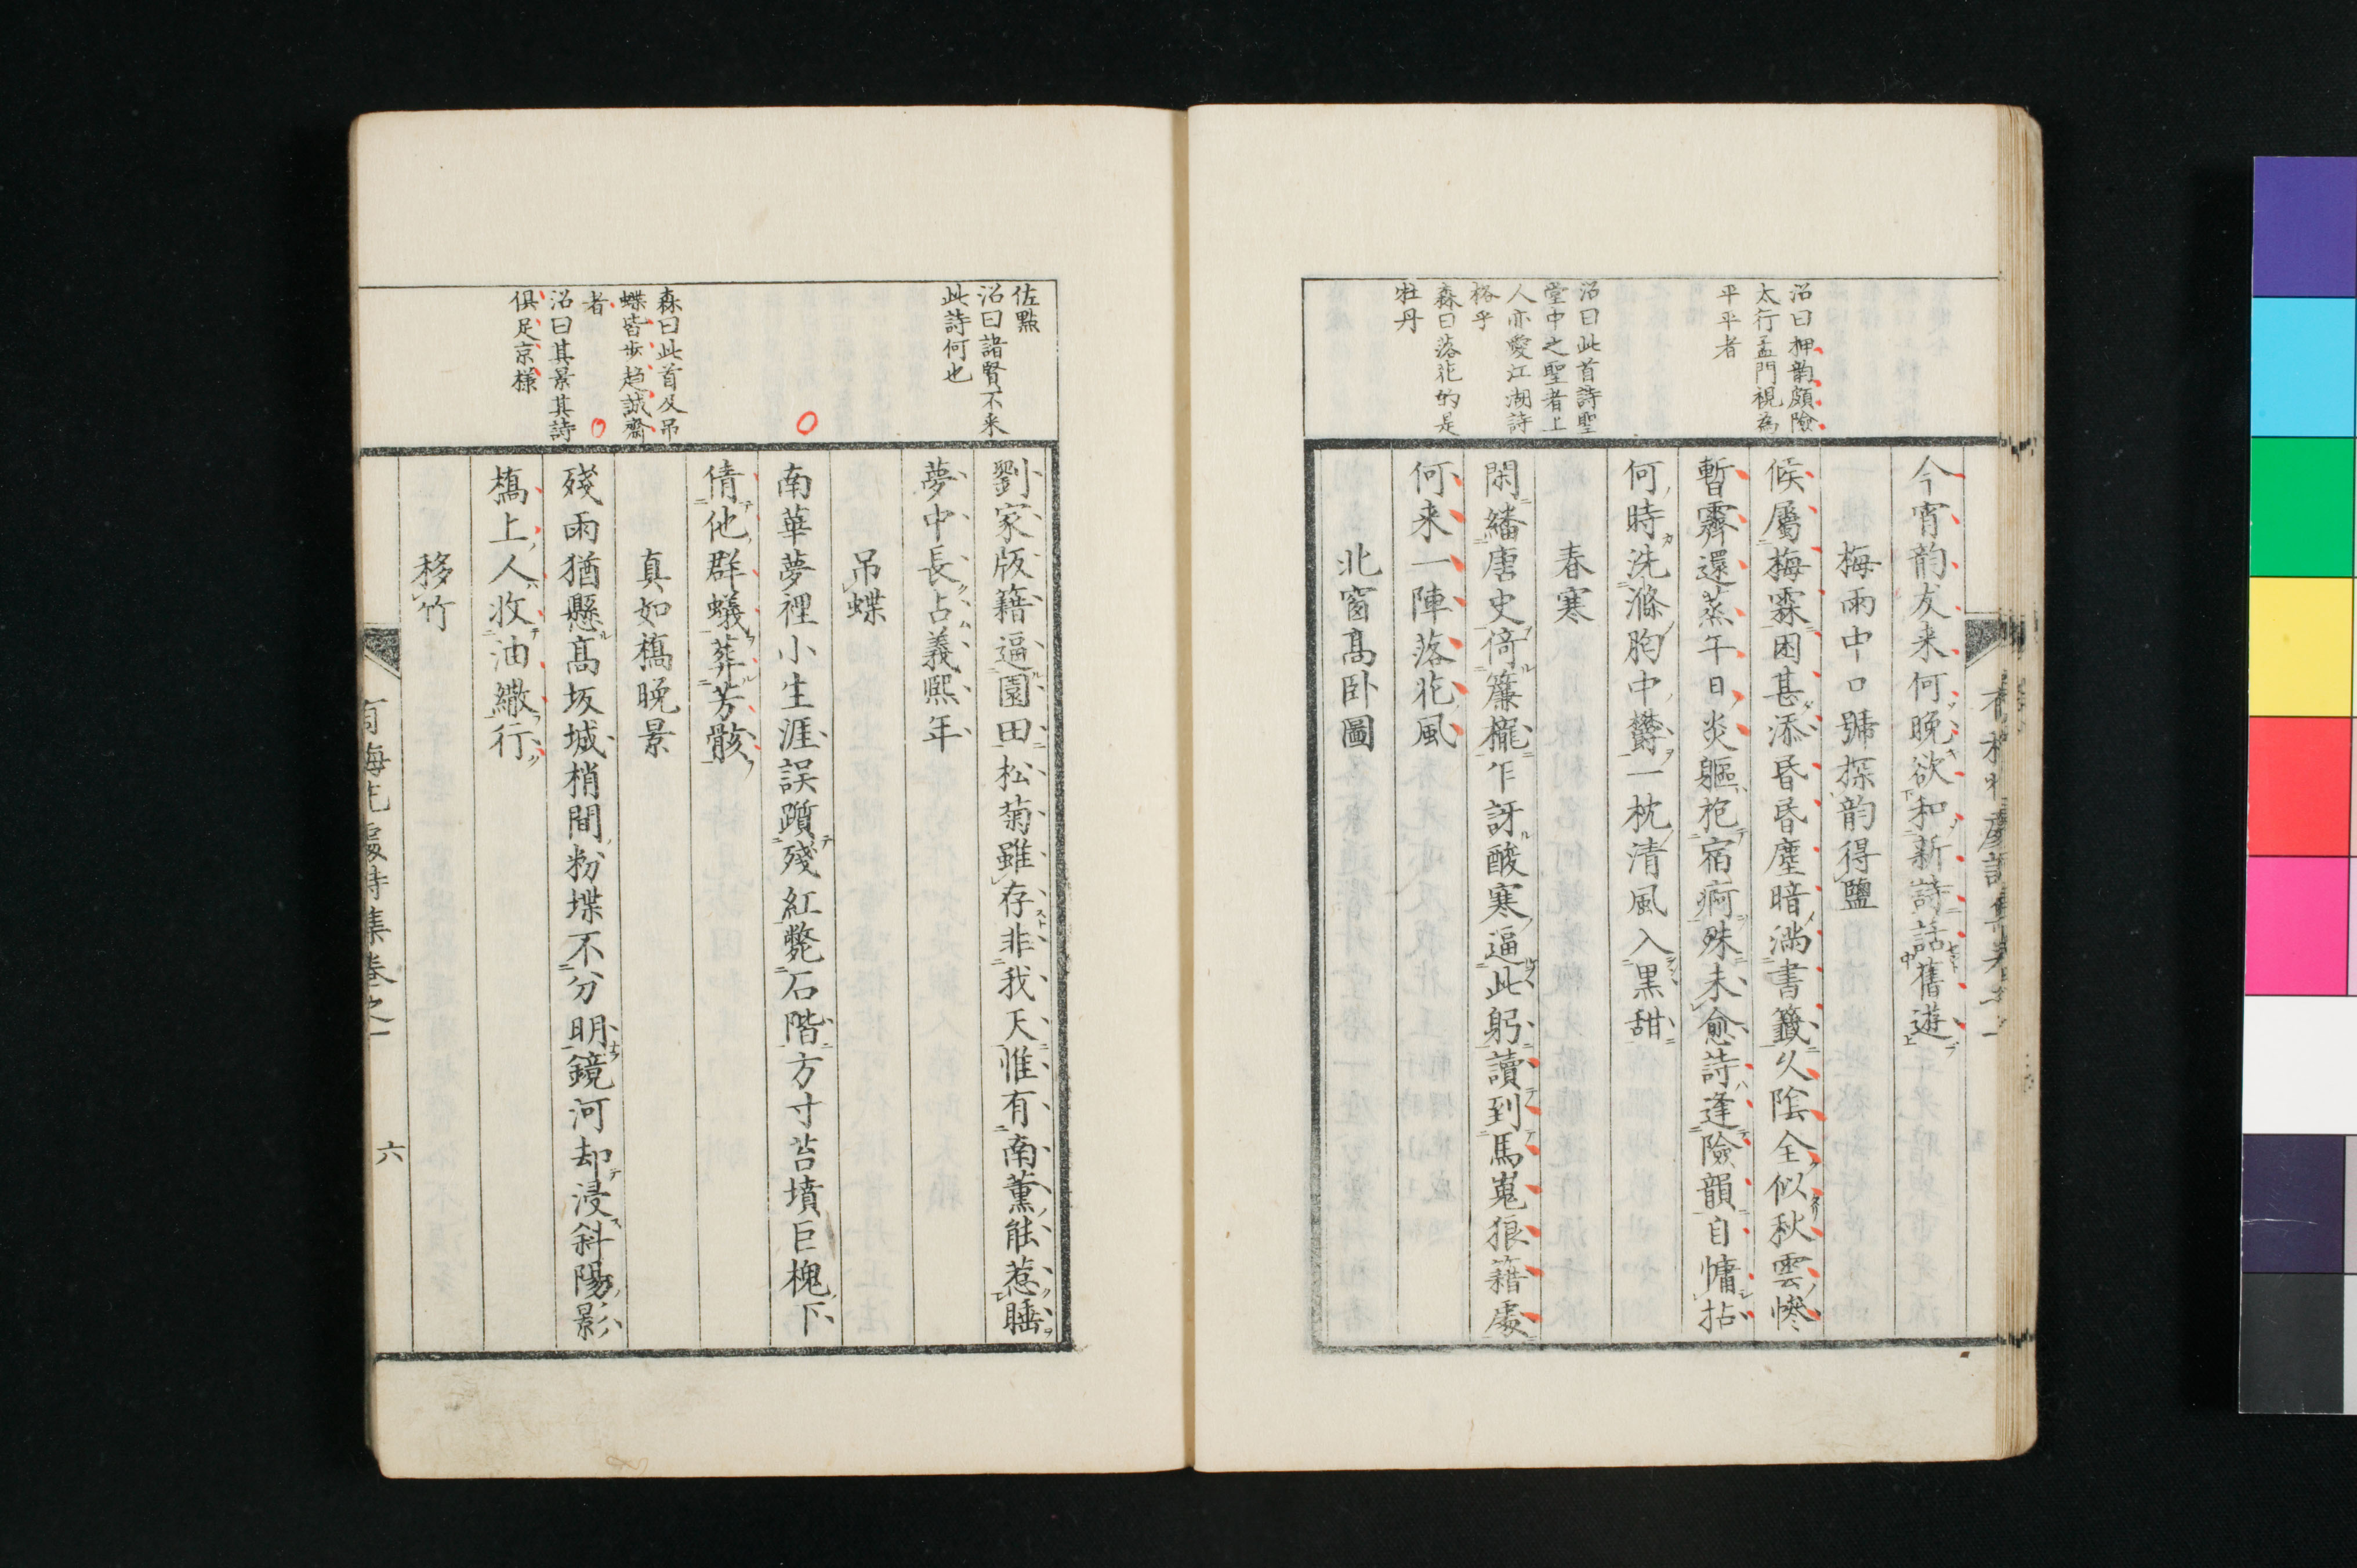 沼曰押韵頗險
太行孟門視為
平平者
今宵韵友来何晩欲和新詩話舊遊
梅雨中口號探韵得鹽
候屬梅霖困甚添昏昏塵暗満書籤久陰全似秋雲惨
暫霽還蒸午日炎軀抱宿痾殊未愈詩逢險韻自慵拈
何時洗滌胸中欝一枕清風入黒甜
沼曰此首詩聖
堂中之聖者上
人亦愛江湖詩
格乎
森曰落花的是
牡丹
春寒
閑繙唐史倚簾櫳乍訝酸寒逼此躬讀到馬嵬狼藉處
何来一陣落花風
北窗髙卧圖
佐點
沼曰諸賢不来
此詩何也
劉家版籍逼園田松菊雖存非我天惟有南薫能惹睡
夢中長占義熙年
吊蝶
南華夢裡小生涯誤躓残紅斃石階方寸苔墳巨槐下
倩他群蟻葬芳骸
森曰此首及吊
蝶皆歩趋誠齋
者
沼曰其景其詩
俱足京様
真如橋晩景
殘雨猶懸髙坂城梢間粉堞不分明鏡河却浸斜陽影
橋上人收油繖行
移竹
詩集巻之一
六